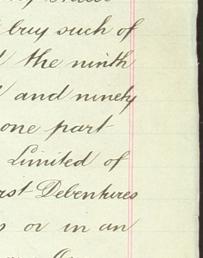 buy such of
the ninth
and ninety
one part
Limited of
Debentures
or in an